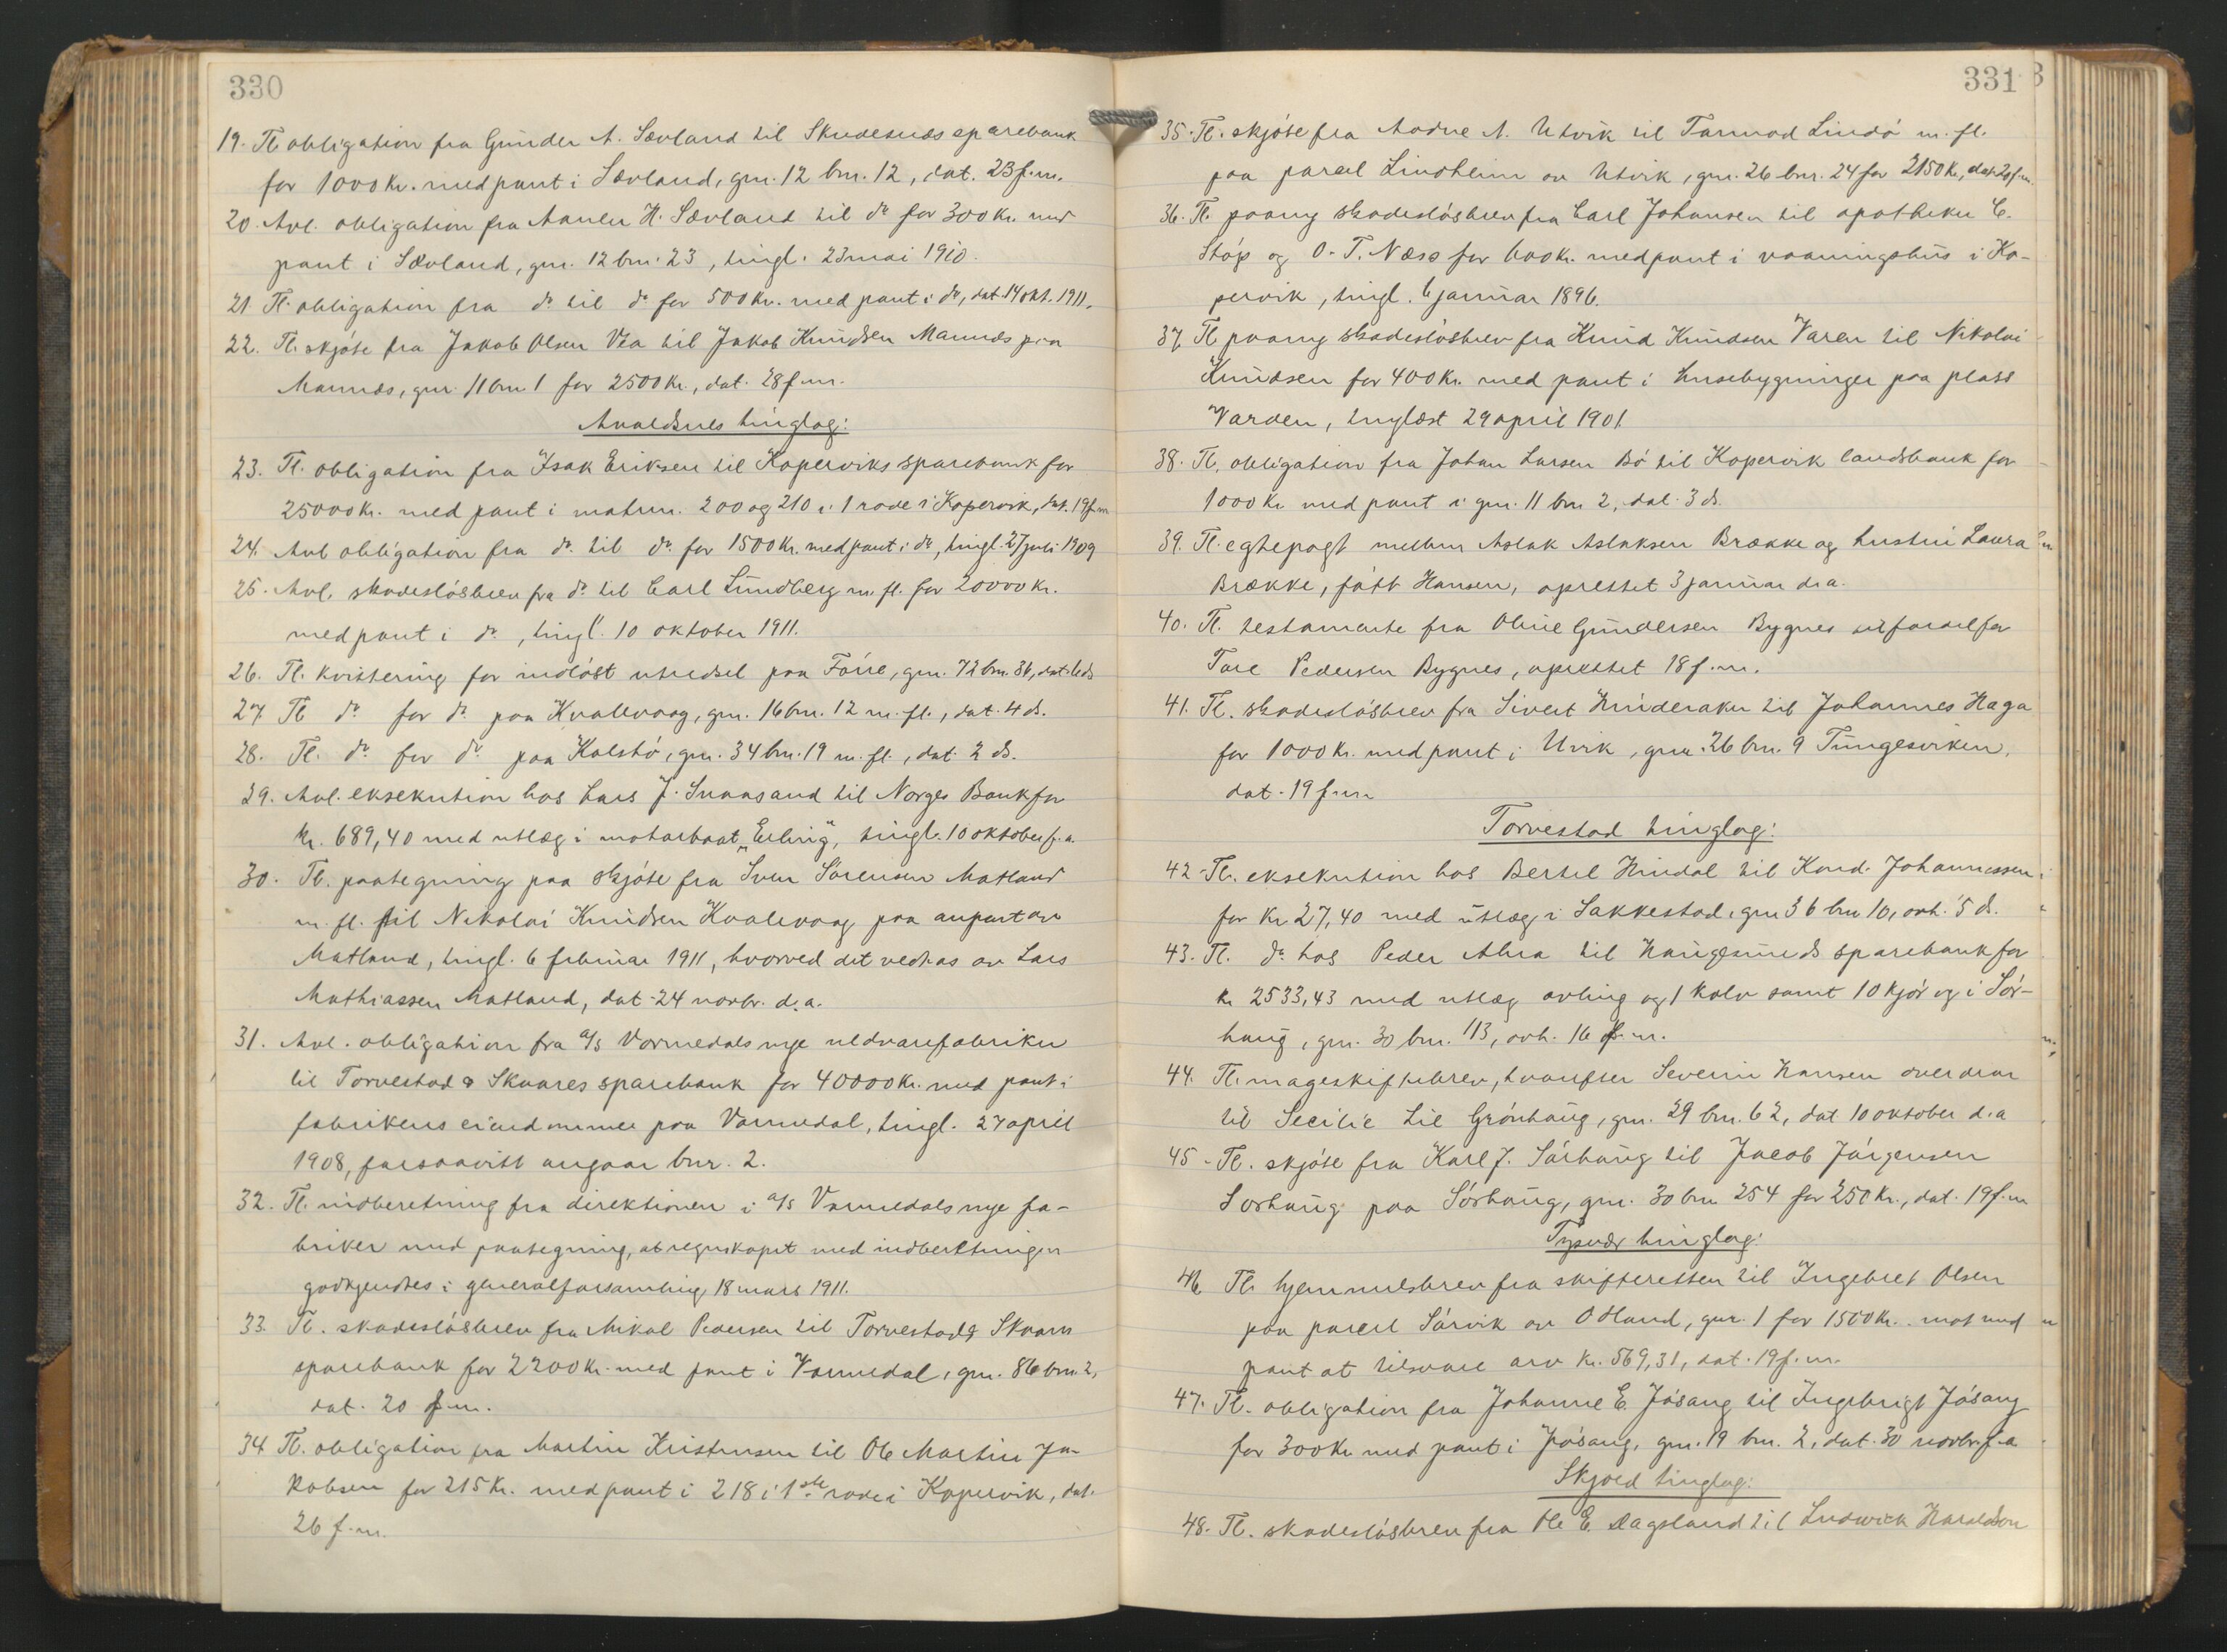 330
19. Tl. obligation fra Gunder A. Sævland til Skudesnæs sparebank
for 1000 Kr. med pant i Sævland, gnr. 12 bnr. 12, dat. 23 f.m.
20. Avl. obligation fra H. Sævland til do for 300 Kr. med
pant i Sævland, gnr. 12 bnr. 23, tingl. 23 mai 1910.
21 Tl. obligation fra do til do for 500 Kr. med pant i do, dat. 14 okt. 1911.
22. Tl. skjöte fra Jakob Olsen Vea til Jakob Knudsen Mannes paa
Mannes, gnr. 11 bnr. 1 for 2500 Kr., dat. 28 f.m.
Avaldsnes tinglag:
23. Tl. obligation fra Isak Eriksen til Koperviks sparebank for
25000 Kr. med pant i matrnr. 200 og 210 i 1 rode i Kopervik, dat. 19 f.m.
24. Avl. obligation fra do til do for 1500 Kr. med pant i do, tingl. 27 juli 1909
25. Avl. skadeslösbrev fra do til Carl Lundberg m. fl. for 20000 Kr.
med pant i do, tingl. 10 oktober 1911.
26. Tl. kvittering for indlöst utredsel paa Förre, gnr. 72 bnr. 36, dat. 6 ds
27. Tl. do for do paa Kvalevaag, gnr. 16 bnr. 12 m. fl., dat. 4 ds.
28. Tl. do for do paa Kalstö, gnr. 34 bnr. 19 m. fl., dat. 2 ds.
29. Avl. eksekution hos Lars J. Snaasand til Norges Bank for
kr. 689,40 med utlæg i motorbaat „Erling“, tingl. 10 oktober f.a.
30. Tl. paategning paa skjöte fra Sven Sörensen Matland
m. fl. til Nikolai Knudsen Kvalevaag paa anpart av
Matland, tingl. 6 februar 1911, hvorved det vedtas av Lars
Mathiassen Matland, dat. 24 novbr. d.a.
31. Avl. obligation fra a/s Vormedals nye uldvarefabriker
til Torvestad & Skaares sparebank for 40000 Kr. med pant i
fabrikens eiendommer paa Vormedal, tingl. 27 april
1908, forsaavitt angaar bnr. 2.
32. Tl. indberetning fra direktionen i a/s Vormedals nye fa-
briker med paategning, at regnskapet med indberetningen
godkjendtes i generalforsamling 18 mars 1911.
33. Tl. skadeslösbrev fra Mikal Pedersen til Torvestad & Skaare
sparebank for 2200 Kr. med pant i Vormedal, gnr. 86 bnr. 2,
dat. 20 f.m.
34 Tl. obligation fra Martin Kristensen til Ole Martin Ja-
kobsen for 215 Kr. med pant i 218 i 1ste rode i Kopervik, dat.
26 f.m.
331
35. Tl. skjöte fra Aadne A. Utvik til Tarmod Lindö m. fl.
paa parcel Lindheim av Utvik, gnr. 26 bnr. 24 for 2150 Kr., dat. 29 f.m.
36. Tl. poang skadeslösbrev fra Carl Johansen til apotheker C.
Stöp og O. T. Næss for 600 Kr. med pant i vaaningshus i Ko-
pervik, tingl. 6 januar 1896.
37. Tl. poang skadeslösbrev fra Knud Knudsen Varen til Nikolai
Knudsen for 400 Kr. med pant i husebygninger paa plass
Varden, tinglæst 29 april 1901.
38. Tl. obligation fra Johan Larsen Bö til Kopervik landsbank for
1000 Kr. med pant i gnr. 11 bnr. 2, dat. 3 ds.
39. Tl. egtepagt mellem Aslak Aslaksen Brække og hustru Laura
Brække, født Hansen, oprettet 3 januar d.a.
40. Tl. testamente fra Oline Gundersen Bygnes
Tore Pedersen Bygnes, oprettet 18 f.m.
41. Tl. skadeslösbrev fra Sivert Hinderaker til Johannes Haga
for 1000 Kr. med pant i Utvik, gnr. 26 bnr. 9 Tungesviken,
dat. 19 f.m.
Torvestad tinglag:
42. Tl. eksekution hos Bertel Hindal til Kond. Johannessen
for Kr. 27,40 med utlæg i Sakkestad, gnr. 36 bnr. 10, avh. 5 ds.
43. Tl. do hos Peder Abra til Haugesunds sparebank for
kr. 2533,43 med utlæg avling og 1 kalv samt 10 kjör og i Sör-
haug, gnr. 30 bnr. 113, avh. 16 f.m.
44. Tl. mageskiftebrev, hvorefter Severin Hansen overdrar
til Secilie Lie Grönhaug, gnr. 29 bnr. 62, dat 10 oktober d.a
45. Tl. skjöte fra Karl J. Sörhaug til Jacob Jörgensen
Sorhaug paa Sörhaug, gnr. 30 bnr. 254 for 250 Kr., dat. 19 f.m
Tysvær tinglag:
46. Tl. hjemmelsbrev fra skifteretten til Ingebret Olsen
paa parcel Sörvik av Odland, gnr. 1 for 1500 Kr. mot med
pant at tilsvare arv kr. 569,31, dat. 19 f.m.
47. Tl. obligation fra Johanne E. Jösang til Ingebrigt Jösang
for 300 Kr. med pant i Jösang, gnr. 19 bnr. 2, dat. 30 novbr. f.a
Skjold tinglag:
48. Tl. skadeslösbrev fra Ole E. Dagsland til Ludwick Haraldson